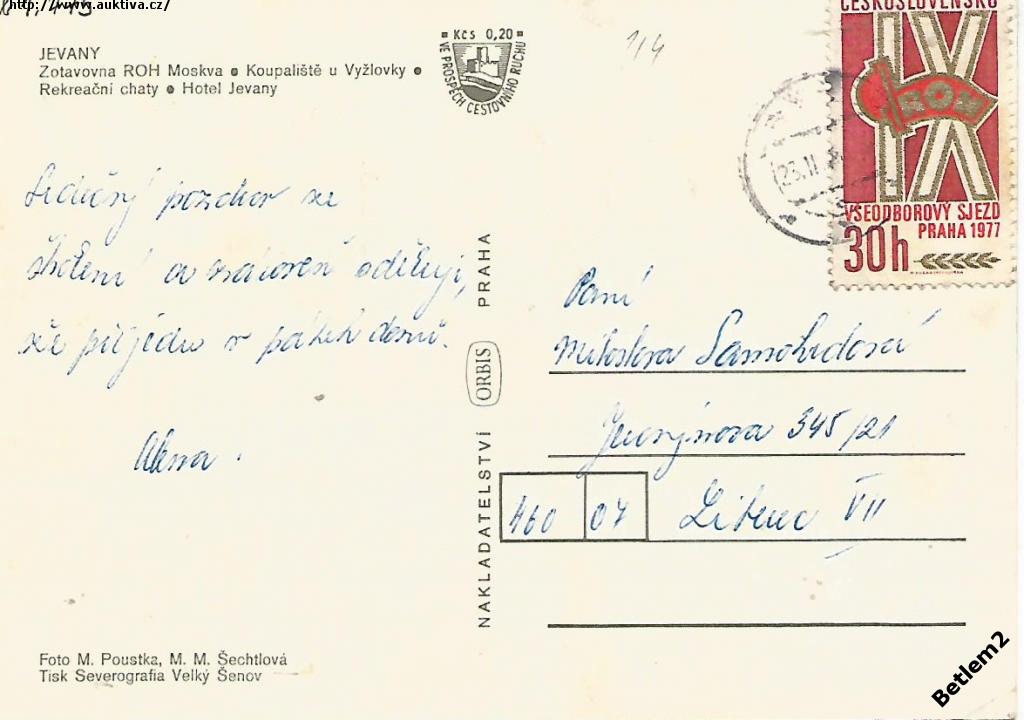 http://www.auktiva.cz/
JEVANY
Zotavovna ROH Moskva • Koupaliště u Vyžlovky •
Rekreační chaty • Hotel Jevany
Kčs 0,20
VE PROSPĚCH CESTOVNÍHO RUCHU
1/4
ČESKOSLOVENSKO
IX
ROH
VŠEODBOROVÝ SJEZD
PRAHA 1977
30h
23.11
Srdečný pozdrav ze
školení a zároveň sděluji,
že přijedu v pátek domů.
Alena.
NAKLADATELSTVÍ ORBIS PRAHA
Paní
Miloslava Samohodová
Jeronýmova 345/21
460 07 Liberec VII
Foto M. Poustka, M. M. Šechtlová
Tisk Severografia Velký Šenov
Betlem2